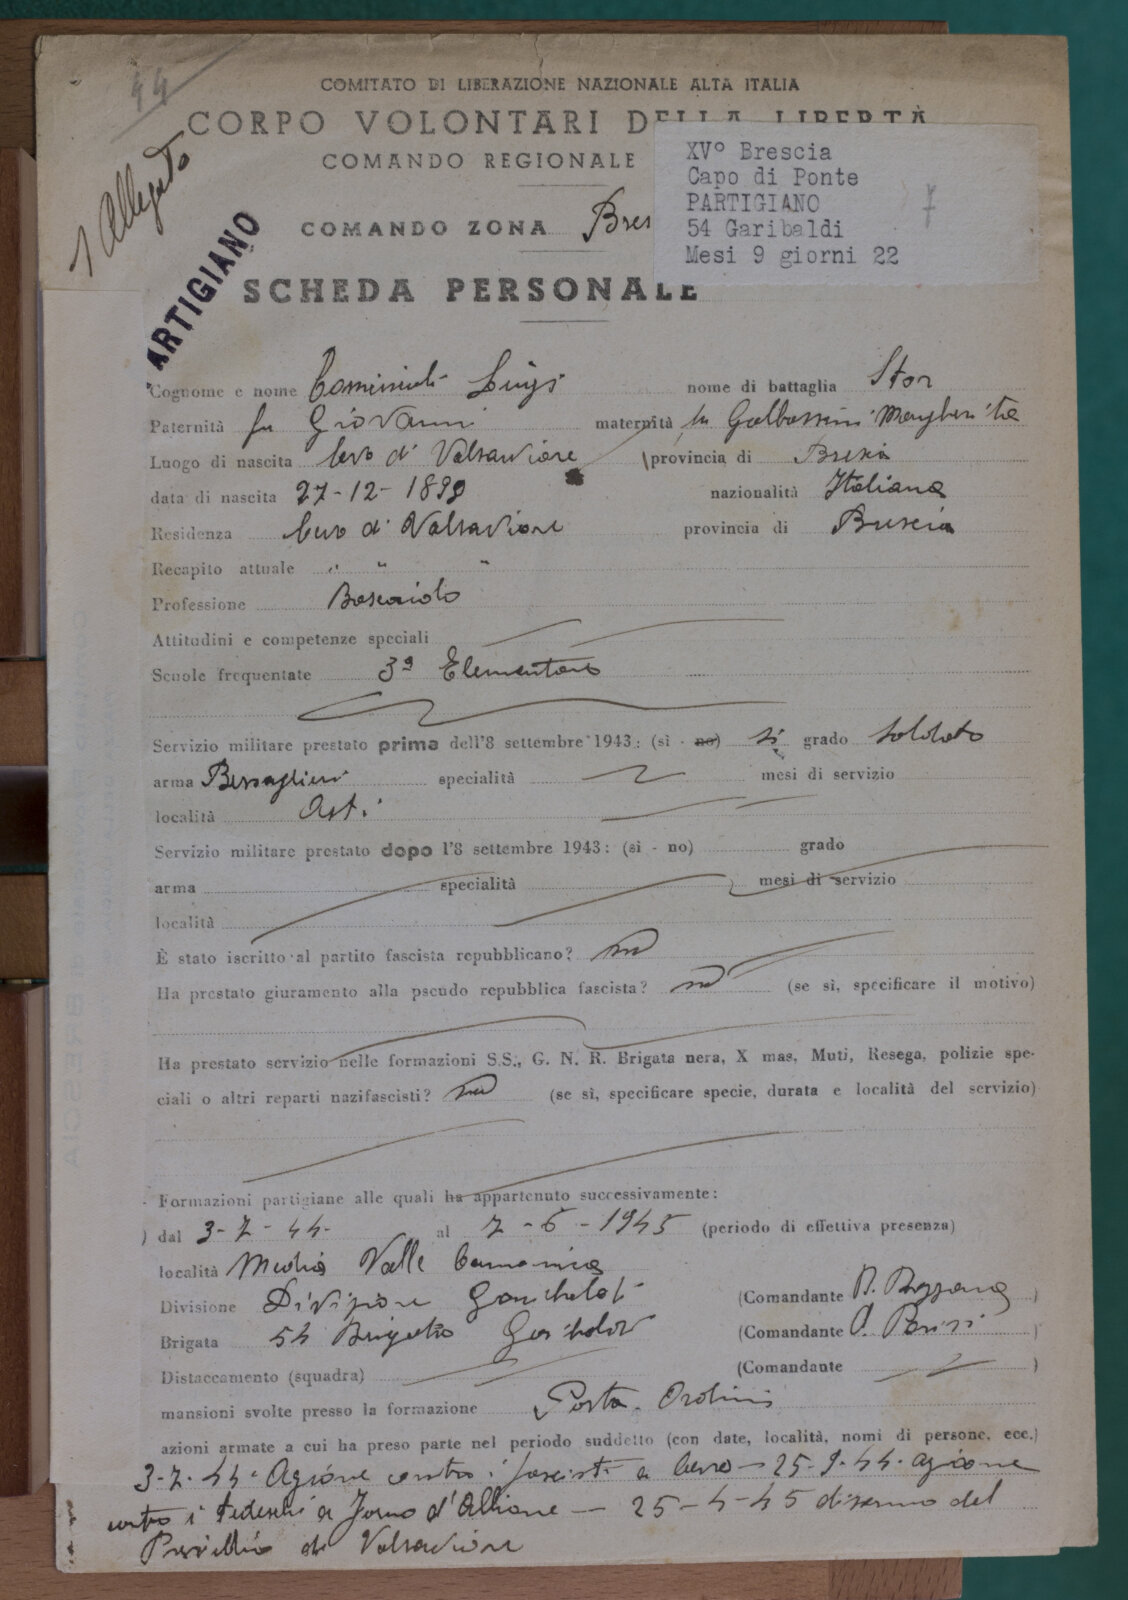 44
1 Allegato
COMITATO DI LIBERAZIONE NAZIONALE ALTA ITALIA
CORPO VOLONTARI DELLA LIBERTÀ
COMANDO REGIONALE
COMANDO ZONA Bres
XVº Brescia
Capo di Ponte
PARTIGIANO
54 Garibaldi
Mesi 9 giorni 22
7
ARTIGIANO
SCHEDA PERSONALE
Cognome e nome Luigi nome di battaglia Stor
Paternità fu Giovanni maternità fu Margherita
Luogo di nascita Cevo di Valsaviore provincia di Brescia
data di nascita 27-12-1899 nazionalità Italiana
Residenza Cevo di Valsaviore provincia di Brescia
Recapito attuale " " "
Professione Boscaiolo
Attitudini e competenze speciali
Scuole frequentate 3ª Elementare
Servizio militare prestato prima dell'8 settembre 1943: (sì - no) si grado soldato
arma Bersaglieri specialità mesi di servizio
località Asti
Servizio militare prestato dopo l'8 settembre 1943: (sì - no) grado
arma specialità mesi di servizio
località
È stato iscritto al partito fascista repubblicano? no
Ha prestato giuramento alla pseudo repubblica fascista? no (se sì, specificare il motivo)
Ha prestato servizio nelle formazioni S.S., G. N. R. Brigata nera, X mas, Muti, Resega, polizie spe-
ciali o altri reparti nazifascisti? no (se sì, specificare specie, durata e località del servizio)
Formazioni partigiane alle quali ha appartenuto successivamente:
) dal 3-7-44- al 7-5-1945 (periodo di effettiva presenza)
località Media Valle Camonica
Divisione Divisione Garibaldi (Comandante )
Brigata 54 Brigata Garibaldi (Comandante )
Distaccamento (squadra) (Comandante )
mansioni svolte presso la formazione Porta-Ordini
azioni armate a cui ha preso parte nel periodo suddetto (con date, località, nomi di persone, ecc.)
3-7-44- Azione contro i fascisti a Cevo - 25-9-44- azione
contro i tedeschi a Forno d'Allione - 25-4-45 disarmo del
Presidio di Valsaviore